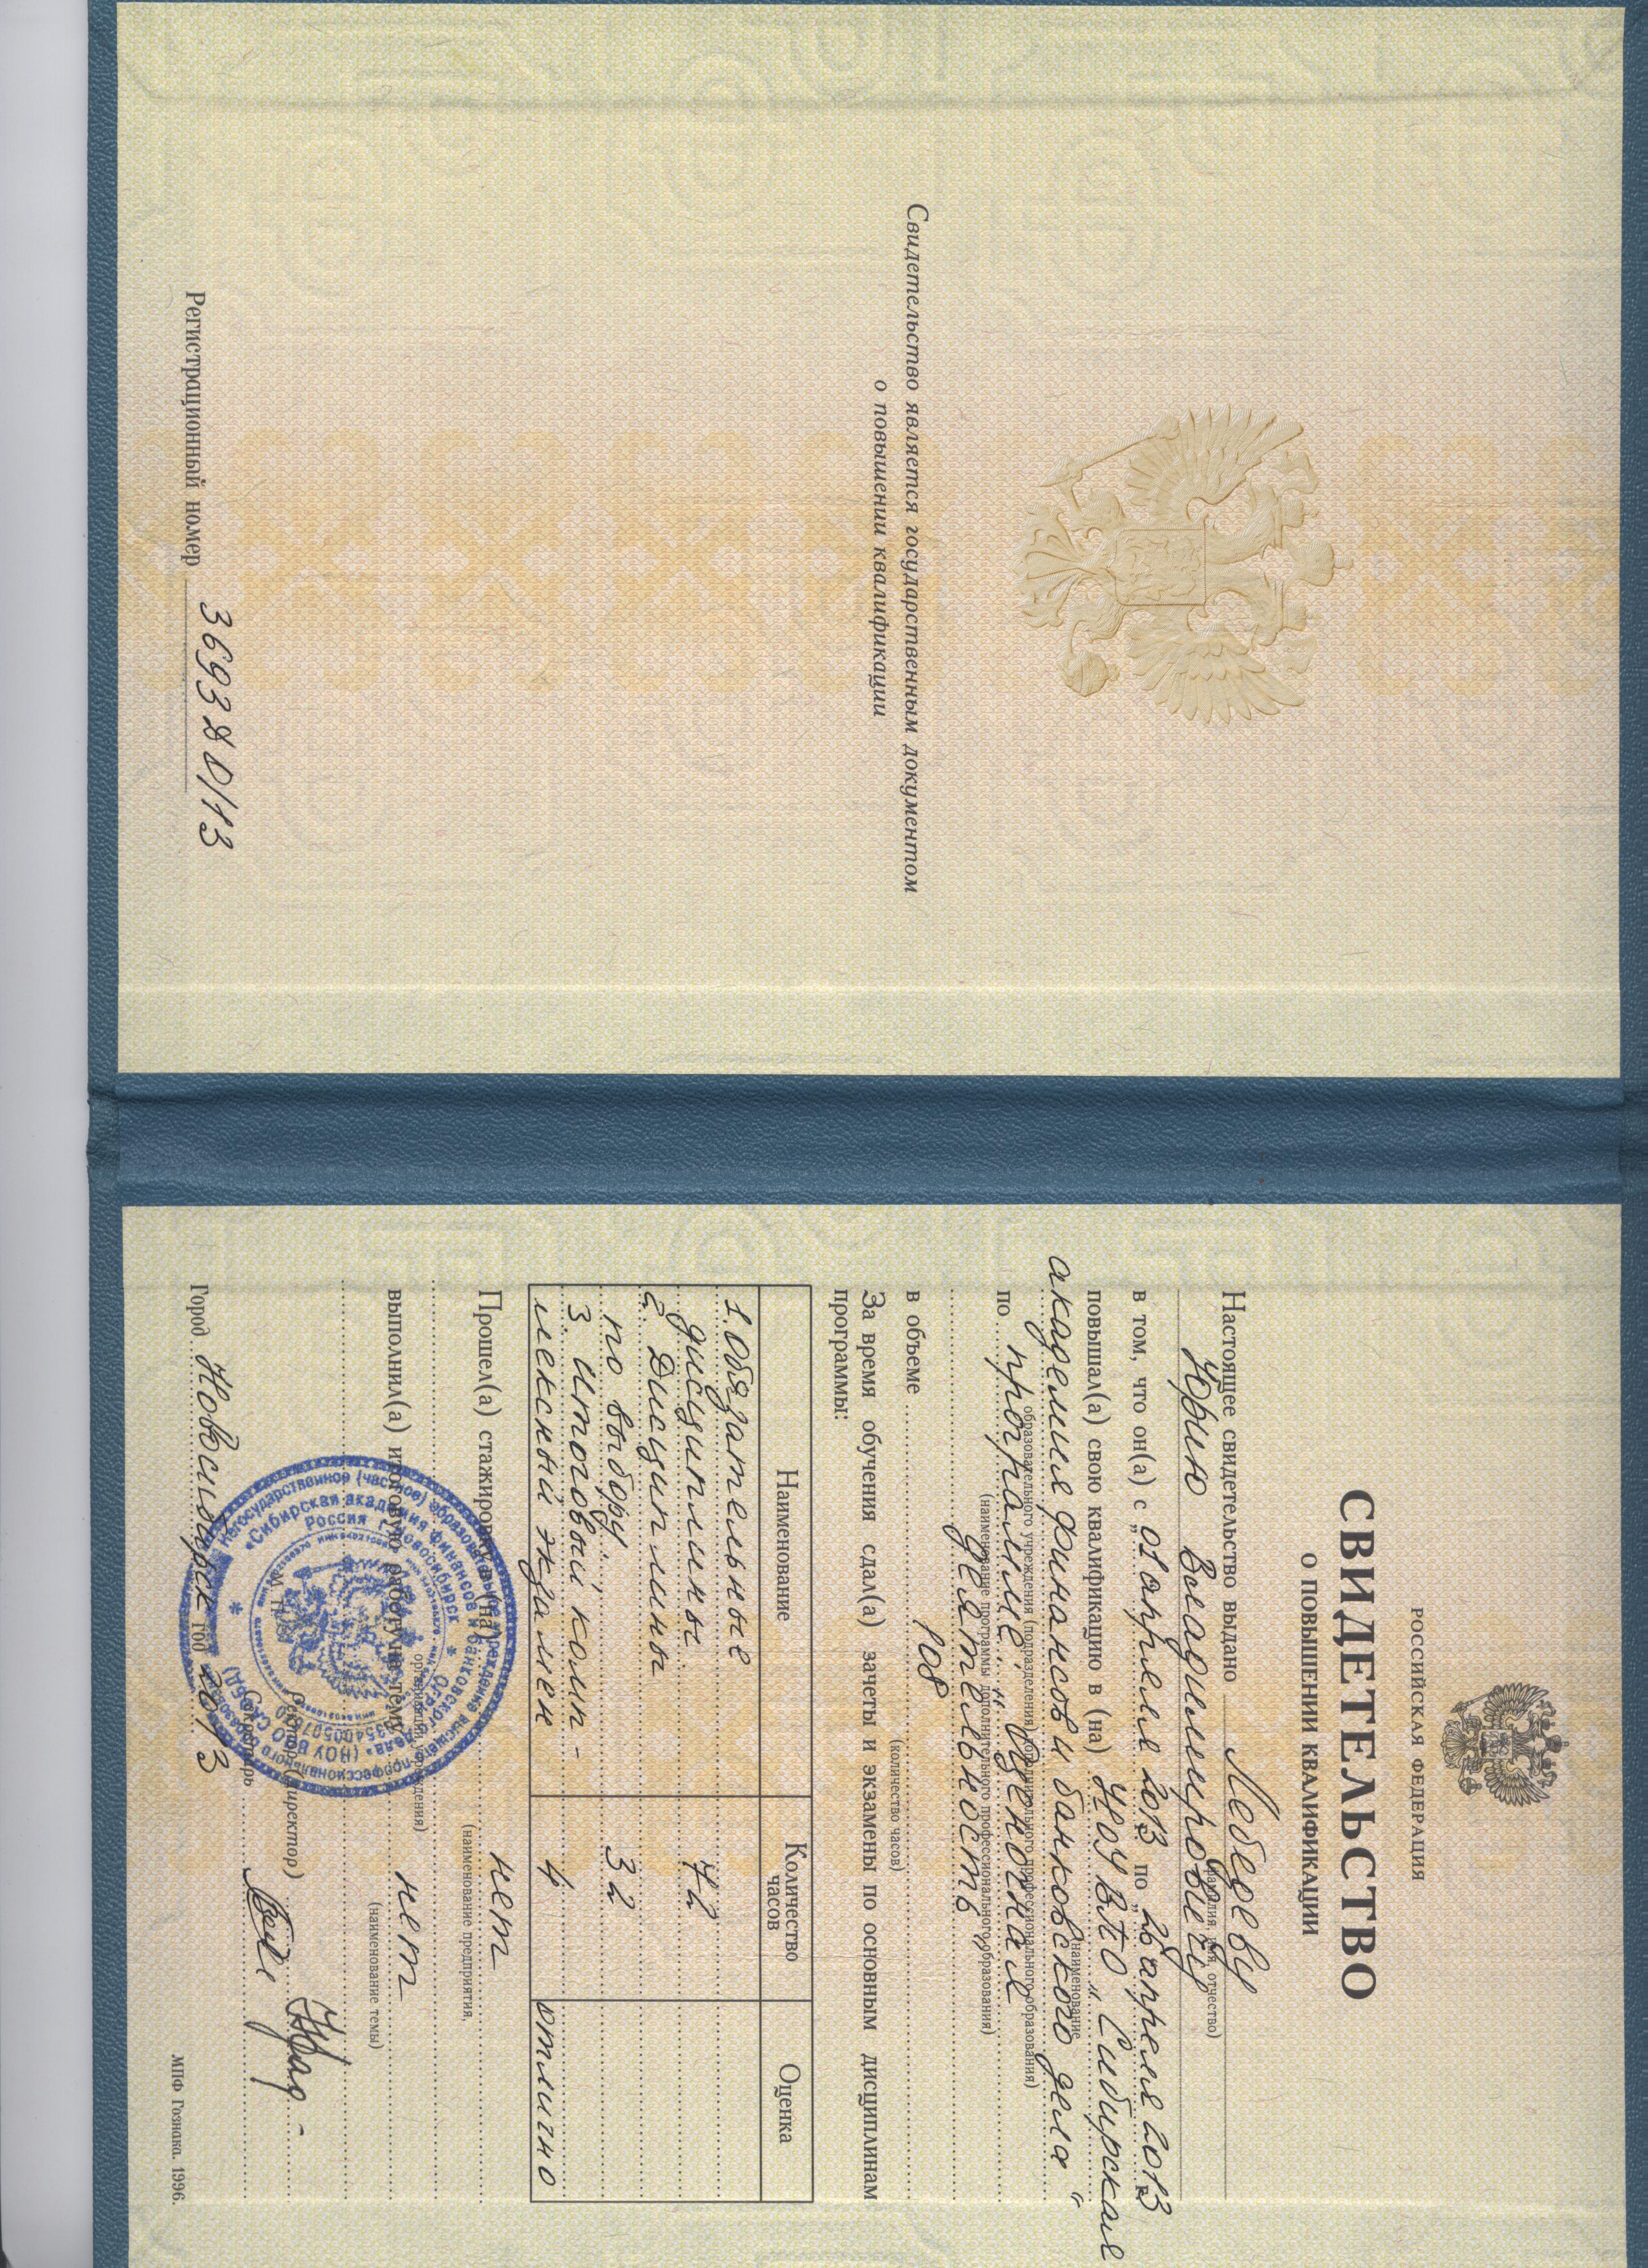 Свидетельство является государственным документом
о повышении квалификации
Регистрационный номер 369380/13
РОССИЙСКАЯ ФЕДЕРАЦИЯ
СВИДЕТЕЛЬСТВО
О ПОВЫШЕНИИ КВАЛИФИКАЦИИ
Настоящее свидетельство выдано Лебедеву
(фамилия, имя, отчество)
Юрию Владимировичу
в том, что он(а) с „01 апреля 2013 по „26 апреля 2013 г.
повышал(а) свою квалификацию в (на) НОУ ВПО „Сибирская
(наименование
академия финансов и банковского дела“
образовательного учреждения (подразделения) дополнительного профессионального образования)
по программе: „Оценочная
(наименование программы дополнительного профессионального образования)
деятельность“
в объеме 108
(количество часов)
За время обучения сдал(а) зачеты и экзамены по основным дисциплинам
программы:
Наименование Количество часов Оценка
1. Обязательные
дисциплины 72
2. Дисциплины
по выбору. 32
3. Итоговый комп-
лексный экзамен 4 отлично
Прошел(а) стажировку в (на) нет
(наименование предприятия,
организации, учреждения)
выполнил(а) итоговую работу на тему нет
(наименование темы)
Ректор (директор)
Секретарь
Город Новосибирск год 2013
МПФ Гознака. 1996.
Негосударственное (частное) образовательное учреждение высшего профессионального образования
«Сибирская академия финансов и банковского дела» (НОУ ВПО САФБД)
Россия г. Новосибирск